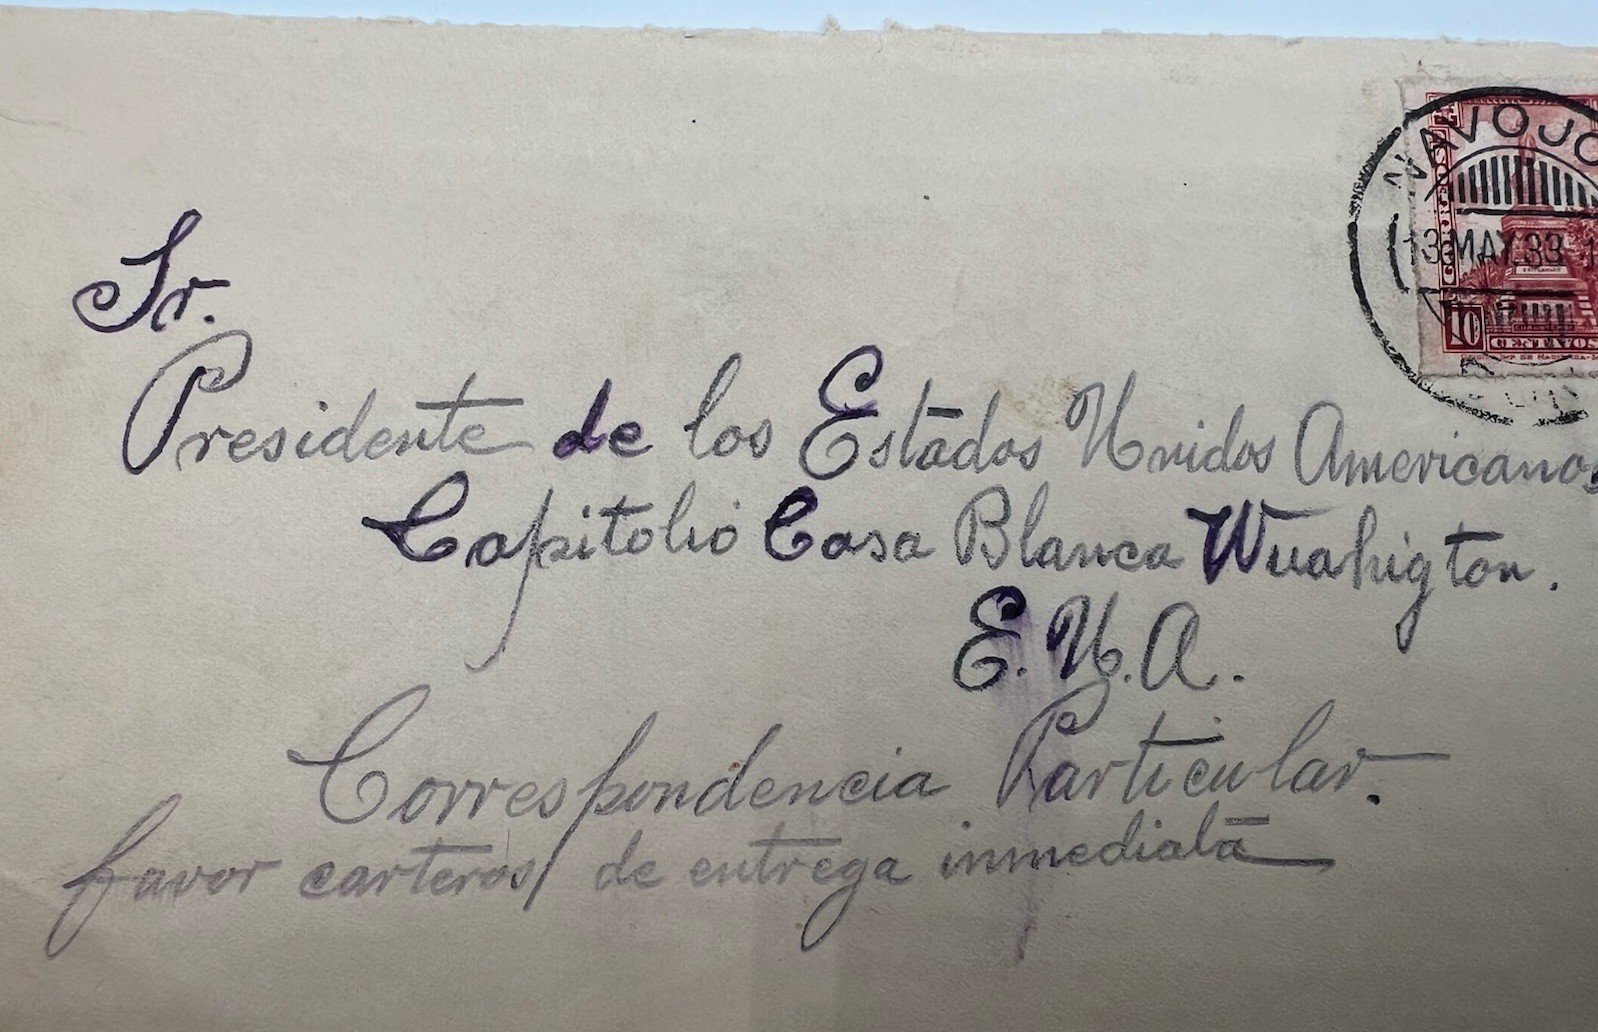 NAVOJO
CORREOS
13 MAY. 33 1
10
CENTAVOS
Sr.
Presidente de los Estados Unidos Americanos
Capitolio Casa Blanca Wuahigton.
E.U.A.
Correspondencia Particular.
favor carteros de entrega inmediata